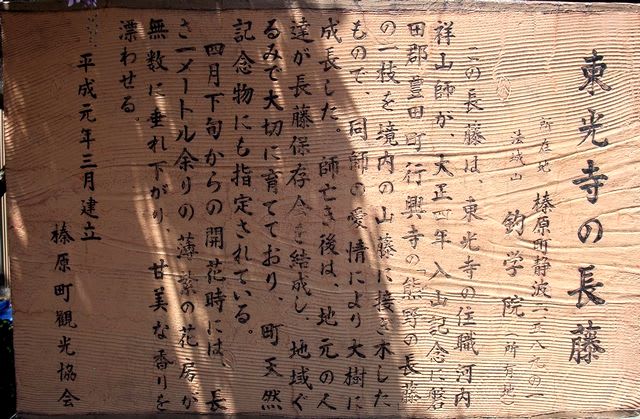 東光寺の長藤
所在地 榛原町静波一二五八九の一
法城山 釣学院(所有地)
この長藤は、東光寺の住職河内
祥山師が、大正四年入山記念に磐
田郡豊田町行興寺の「熊野の長藤」
の一枝を境内の山藤に接ぎ木した
もので、同師の愛情により大樹に
成長した。師亡き後は、地元の人
達が長藤保存会を結成し、地域ぐ
るみで大切に育てており、町天然
記念物にも指定されている。
四月下旬からの開花時には、長
さ一メートル余りの薄紫の花房が
無数に垂れ下がり、甘美な香りを
漂わせる。
平成元年三月建立
榛原町観光協会